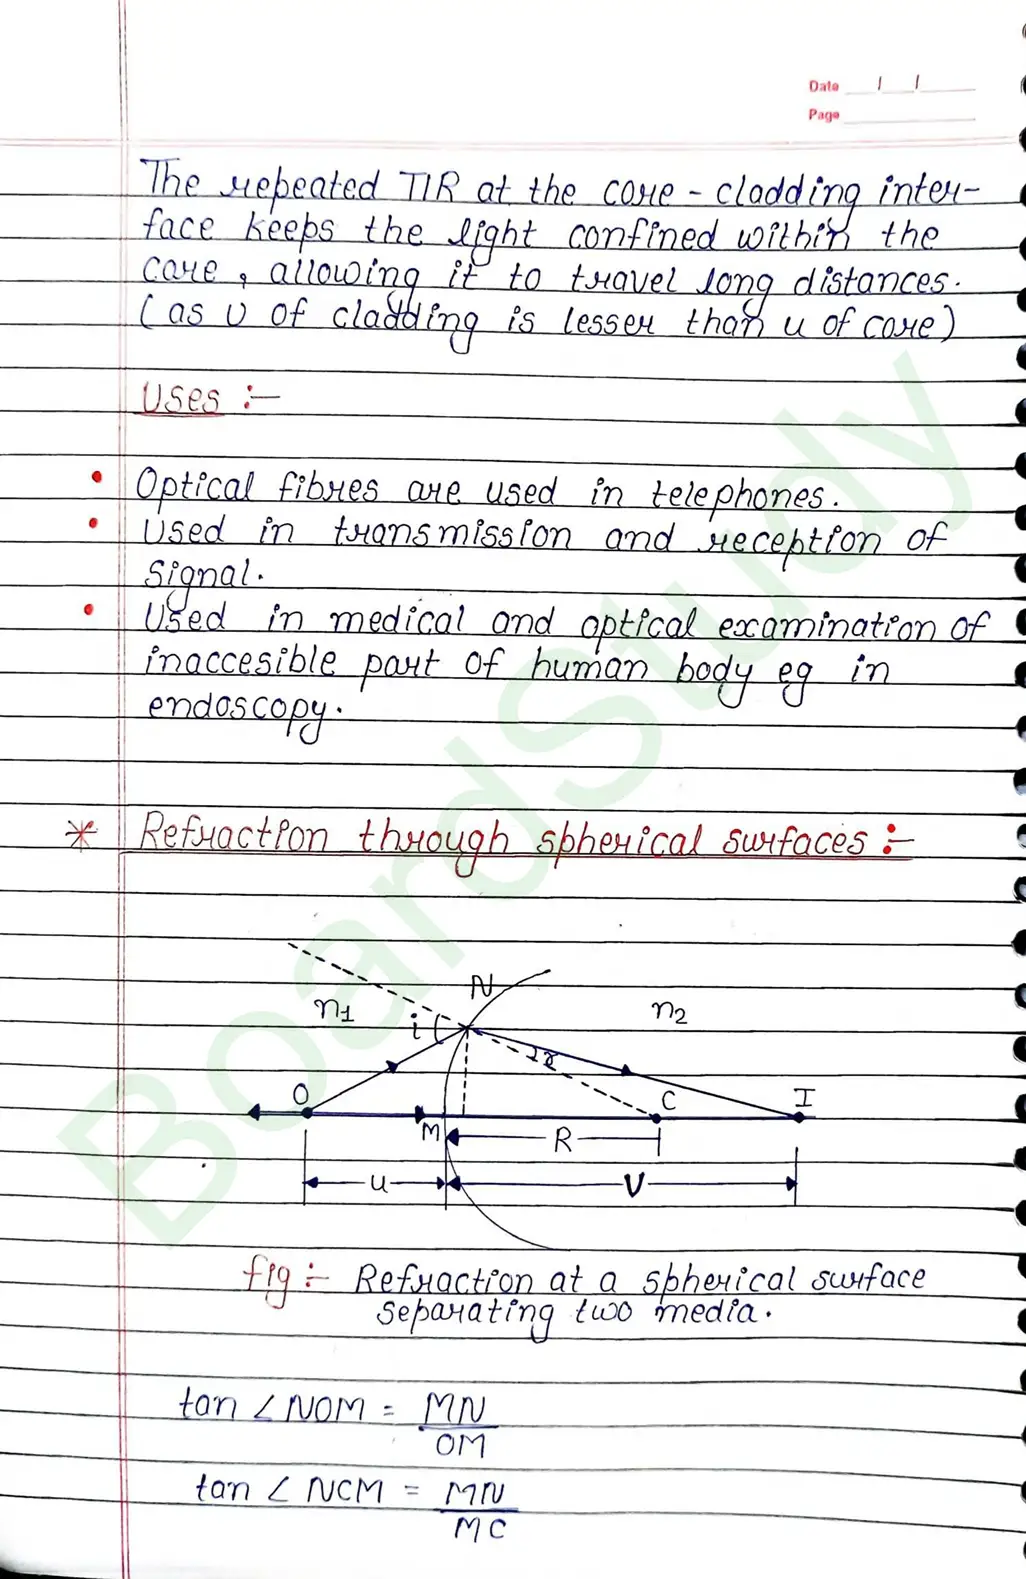 Date
Page
The repeated TIR at the core - cladding inter-
face keeps the light confined within the
core, allowing it to travel long distances.
(as u of cladding is lesser than u of core)
Uses :-
• Optical fibres are used in telephones.
• Used in transmission and reception of
signal.
• Used in medical and optical examination of
inaccesible part of human body eg in
endoscopy.
* Refraction through spherical surfaces :-
N
n1 i n2
r
O C I
M R
u V
fig :- Refraction at a spherical surface
separating two media.
tan ∠ NOM = MN
OM
tan ∠ NCM = MN
MC
BoardStudy